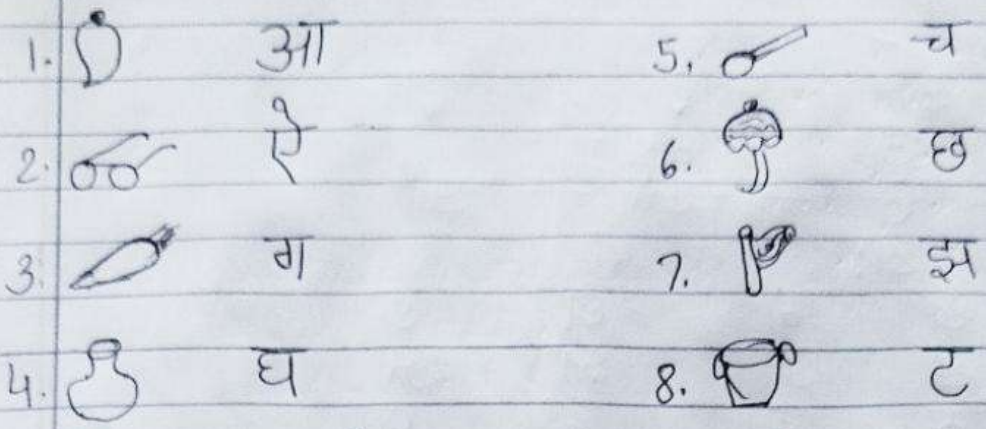 1. आ
2. ऐ
3. ग
4. घ
5. च
6. छ
7. झ
8. ट